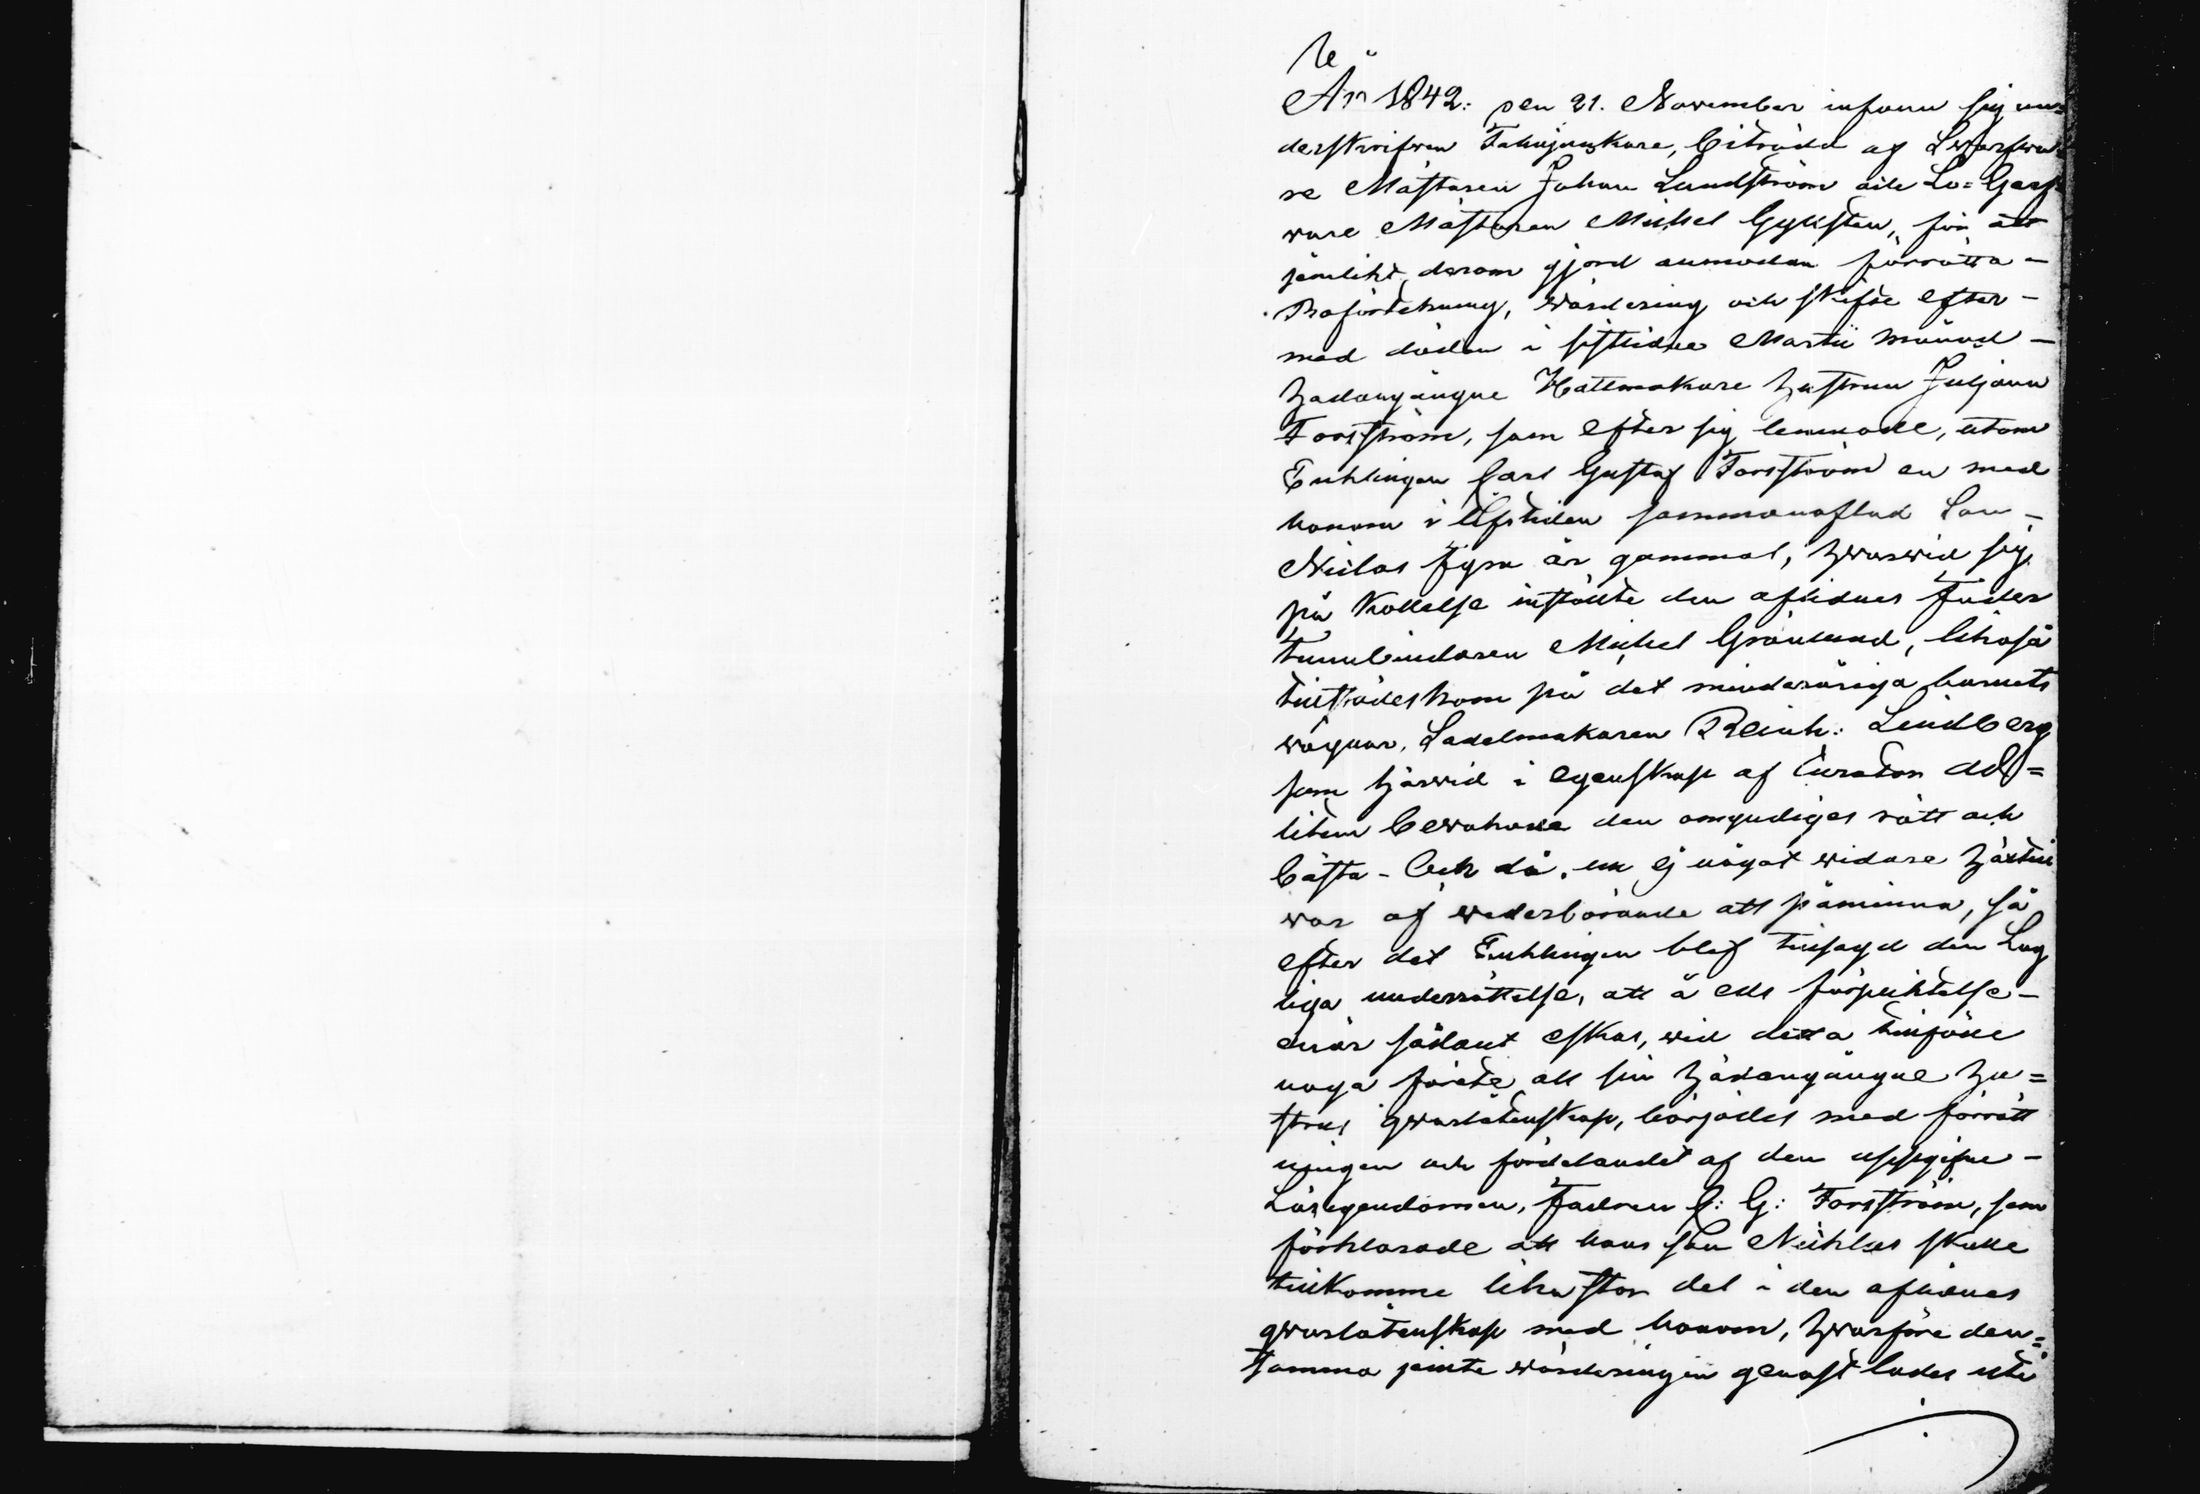 År 1842: den 21. November infann sig un=
derskrifven Fahnjunkare, biträdd af Swarfwa=
re Mästaren Johan Lundström och Lo=Garf
vare Mästaren Michel Gyllsten, för att
jemlikt derom gjord anmodan förrätta -
Bouptekning, värdering och skifte efter -
med döden i sistlidne Martii månad -
hädangångne Hattmakare hustrun Juljana
Forsström, som efter sig lemnade, utom
Enklingen Carl Gustaf Forsström en med
honom i lifstiden sammanaflad Son -
Niclas fyra år gammal, hwarwid sig
på kallelse inställte den aflidnes fader
tunnbindaren Michel Grönlund, likaså
tillstädeskom på det minderåriga barnets
wägnar, Sadelmakaren Reinh: Lindberg
som härwid i egenskap af Curator ad=
litem bewakade den omyndiges rätt och
bästa - Och då, en ej något widare härtill
war af wederbörande att påminna, så
efter det Enklingen blef tillsagd den Lag
liga underrättelse, att å eds förpliktelse -
enär sådant äskas, wid detta tillfälle
noga förete all sin hädangångne hu=
strus qwarlåtenskap, börjades med förrätt
ningen och fördelandet af den uppgifne -
Lösegendomen, fadren C: G: Forsström, som
förklarade att hans son Nicklas skulle
tillkomma lika stor del i den aflidnes
qwarlåtenskap med honom, hwarföre den=
samma jemte wärderingen genast lades uti